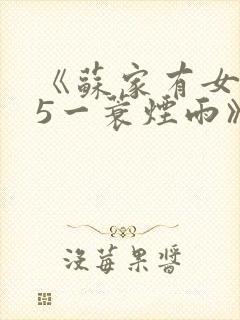 《蘇家有女
5一蓑煙雨》
沒莓果醬